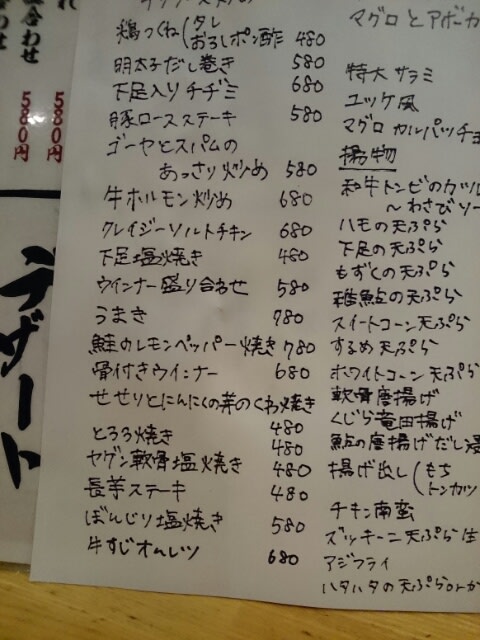 鶏つくね(タレ
おろしポン酢 480
明太子だし巻き 580
下足入りチヂミ 680
豚ロースステーキ 580
ゴーヤとスパムの
あっさり炒め 580
牛ホルモン炒め 680
クレイジーソルトチキン 680
下足塩焼き 480
ウインナー盛り合わせ 580
うまき 780
鮭のレモンペッパー焼き 780
骨付きウインナー 680
せせりとにんにくの芽のくわ焼き
480
とろろ焼き 480
ヤゲン軟骨塩焼き 480
長芋ステーキ 480
ぼんじり塩焼き 580
牛すじオムレツ 680
マグロとアボカ
特大サラミ
ユッケ風
マグロカルパッチョ
揚物
和牛トンビのカツレ
〜わさびソー
ハモの天ぷら
下足の天ぷら
もずくの天ぷら
稚鮎の天ぷら
スイートコーン天ぷら
するめ天ぷら
ホワイトコーン天ぷら
軟骨唐揚げ
くじら竜田揚げ
鮎の唐揚げだし浸
揚げ出し(もち
トンカツ
チキン南蛮
ズッキーニ天ぷら
アジフライ
ハタハタの天ぷらorか
合わせ
580円
580円
デザート